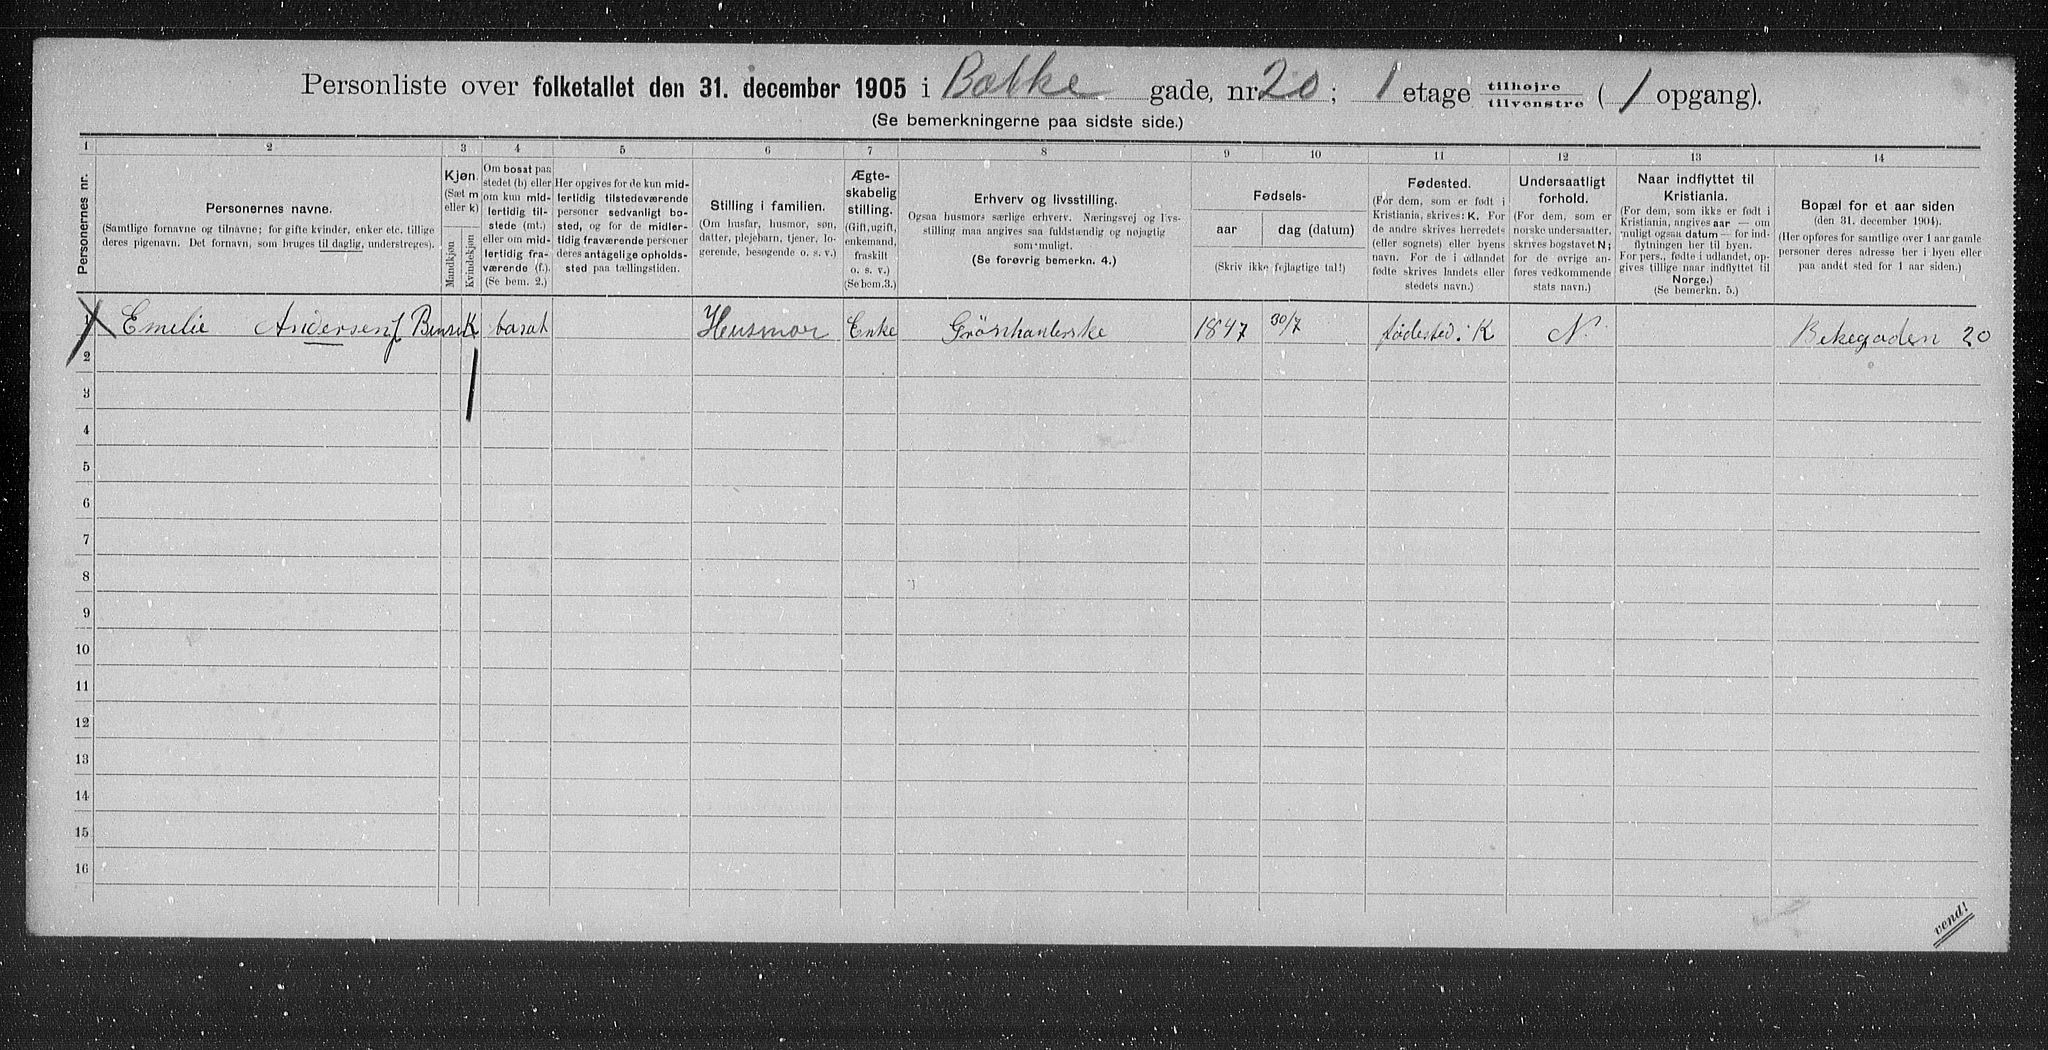 Personliste over folketallet den 31. december 1905 i Bakke gade, nr. 20; 1 etage tilhøjre tilvenstre ( 1 opgang).
(Se bemerkningerne paa sidste side.)
1 2 3 4 5 6 7 8 9 10 11 12 13 14
Personernes nr.
Personernes navne.
(Samtlige fornavne og tilnavne; for gifte kvinder, enker etc. tillige
deres pigenavn. Det fornavn, som bruges til daglig, understreges).
Kjøn.
(Sæt m
eller k)
Mandkjøn
Kvindekjøn
Om bosat paa
stedet (b) eller
om kun mid-
lertidig til-
stede (mt.)
eller om mid-
lertidig fra-
værende (f.).
(Se bem. 2.)
Her opgives for de kun mid-
lertidig tilstedeværende
personer sedvanligt bo-
sted, og for de midler-
tidig fraværende personer
deres antagelige opholds-
sted paa tællingstiden.
Stilling i familien.
(Om husfar, husmor, søn,
datter, plejebarn, tjener, lo-
gerende, besøgende o. s. v.)
Ægte-
skabelig
stilling.
(Gift, ugift,
enkemand,
fraskilt
o. s. v.)
(Se bem.3.)
Erhverv og livsstilling.
Ogsaa husmors særlige erhverv. Næringsvej og livs-
stilling maa angives saa fuldstændig og nøjagtig
som muligt.
(Se forøvrig bemerkn. 4.)
Fødsels-
aar
dag (datum)
(Skriv ikke fejlagtige tal!)
Fødested.
(For dem, som er født i
Kristiania, skrives: K. For
de andre skrives herredets
(eller sognets) eller byens
navn. For de i udlandet
fødte skrives landets eller
stedets navn.)
Undersaatligt
forhold.
(For dem, som er
norske undersaatter,
skrives bogstavet N;
for de øvrige an-
føres vedkommende
stats navn.)
Naar indflyttet til
Kristiania.
(For dem, som ikke er født i
Kristiania, angives aar — om
muligt ogsaa datum — for ind-
flytningen her til byen.
For pers., fødte i udlandet, op-
gives tillige naar indflyttet til
Norge.)
(Se bemerkn. 5.)
Bopæl for et aar siden
(den 31. december 1904).
(Her opføres for samtlige over 1 aar gamle
personer deres adresse her i byen eller
paa andet sted for 1 aar siden.)
1 Emilie Andersen f. K bosat Husmor Enke Grønhanlerske 1847 30/7 fødested: K N. Bekegaden 20
2
3
4
5
6
7
8
9
10
11
12
13
14
15
16
vend!